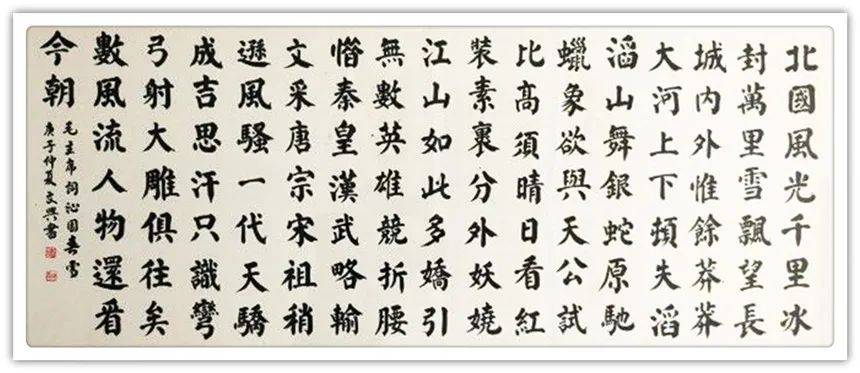 北國風光千里冰
封萬里雪飄望長
城内外惟餘莽莽
大河上下頓失滔
滔山舞銀蛇原馳
蠟象欲與天公試
比高須晴日看紅
裝素裹分外妖嬈
江山如此多嬌引
無數英雄競折腰
惜秦皇漢武略輸
文采唐宗宋祖稍
遜風騷一代天驕
成吉思汗只識彎
弓射大雕俱往矣
數風流人物還看
今朝
毛主席词沁园春雪
庚子仲夏文興書